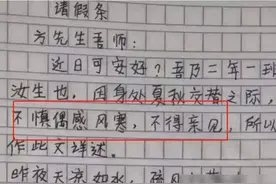 请假条
方先生吾师：
近日可安好？吾乃二年一班
汝生也，因身处夏秋交替之际
不慎偶感风寒，不得亲见，所以
作此文详述。
昨夜天凉如水，